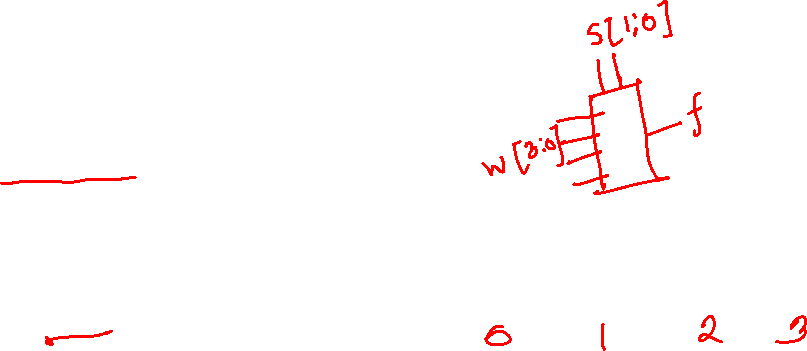 S[1:0]
f
W[3:0]
0 1 2 3